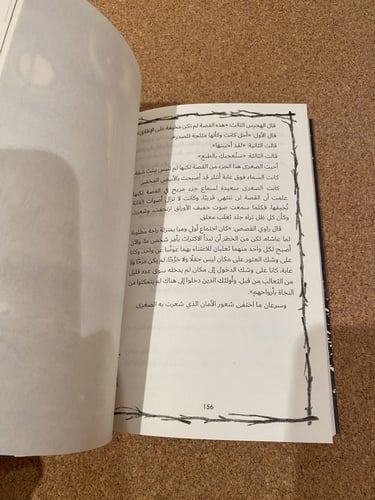 قال الهجرس الثالث: «هذه القصة لم تكن مخيفة على الإطلاق».
قال الأول: «أجل كانت وكأنها مثلجة للصدر».
قالت الثانية: «لقد أحببتها».
قالت الثالثة: «ستُعجبكِ بالطبع».
أحبت الصغرى هذا الجزء من القصة لكنها لم تنبس ببنت شفة.
كانت السماء فوق غابة أنتلر قد أصبحت بالأساس المخضر
كانت الصغرى سعيدة لسماع جزء مريح في القصة لكنها
علمت أن القصة لن تنتهي قريبًا، وكانت لا تزال أصوات الغابة
تُخيفها، فكلما سمعت صوت حفيف الأوراق ارتجفت وشعرت
وكأن كل ظل تراه جلد ثعلب معلق.
قال راوي القصص: «كان اجتماع أولي وميا بمنزلة راحة مطلوبة
لما عاشاه، لكن من الخطر أن تبدأ الاكتراث بأمر شخصٍ ما، والآن
أصبح لكل واحد منهما ثعلبان للاعتناء بهما عوضًا عن واحد، وكانا
على وشك العثور على مكان ليس حقلًا ولا حَرَجًا، لم يكن مرجًا ولا
غابة، كانا على وشك الدخول إلى مكان لم يدخله سوى عدد قليل
من الثعالب من قبل، وأولئك الذين دخلوا إلى هناك لم يتمكنوا من
النجاة بأرواحهم».
وسرعان ما اختفى شعور الأمان الذي شعرت به الصغرى.
156